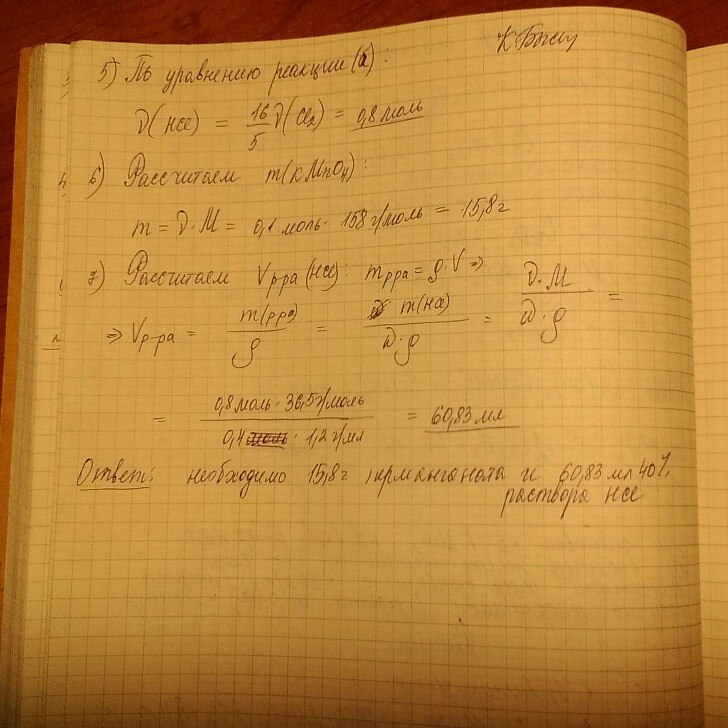 5) По уравнению реакции (а):
ν(HCl) = 16/5 ν(Cl₂) = 0,8 моль
6) Рассчитаем m(KMnO₄):
m = ν·M = 0,1 моль · 158 г/моль = 15,8 г
7) Рассчитаем Vр-ра (HCl): mр-ра = ρ·V ⇒
⇒ Vр-ра = m(р-ра)/ρ = m(HCl)/ω·ρ = ν·M/ω·ρ =
= 0,8 моль · 36,5 г/моль / 0,4 моль · 1,2 г/мл = 60,83 мл
Ответ: необходимо 15,8 г перманганата и 60,83 мл 40%
раствора HCl